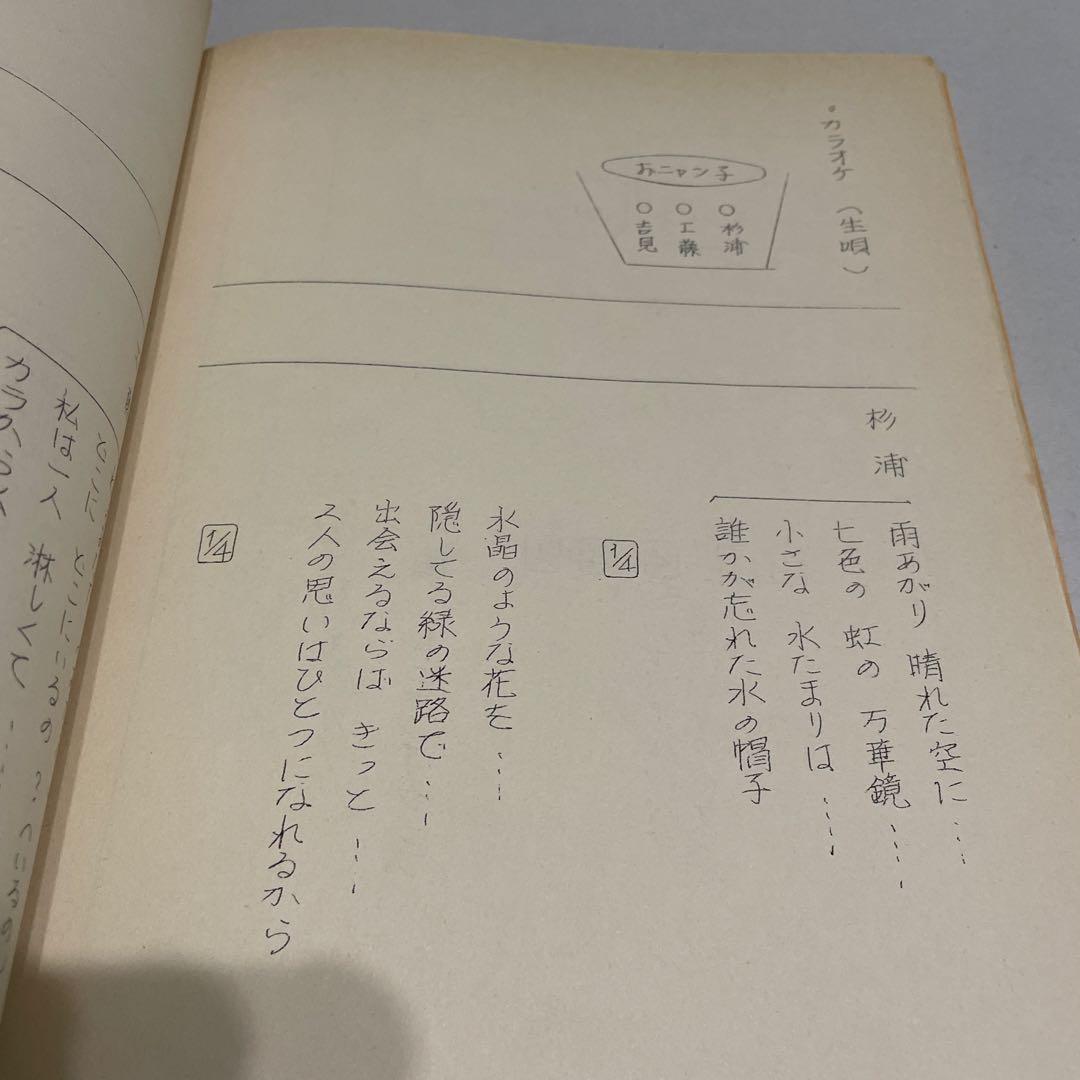 ・カラオケ（生唄）
おニャン子
○杉浦
○工藤
○吉見
杉浦
雨あがり 晴れた空に……
七色の 虹の 万華鏡……
小さな 水たまりは……
誰かが忘れた水の帽子
1/4
水晶のような花を……
隠してる緑の迷路で……
出会えるならば きっと……
2人の思いはひとつになれるから
1/4
どこに どこにいるの?
私は一人 淋しくて